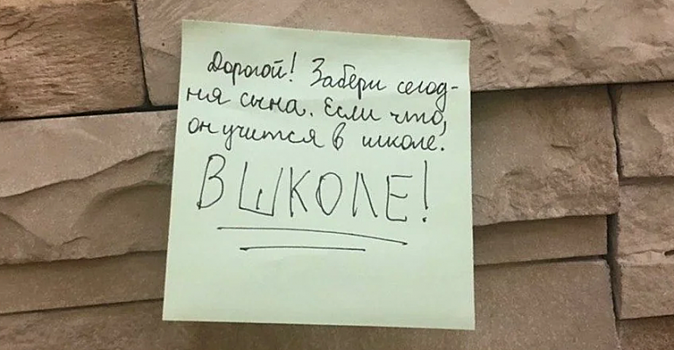 Дорогой! Забери сегод-
ня сына. Если что,
он учится в школе.
В ШКОЛЕ!